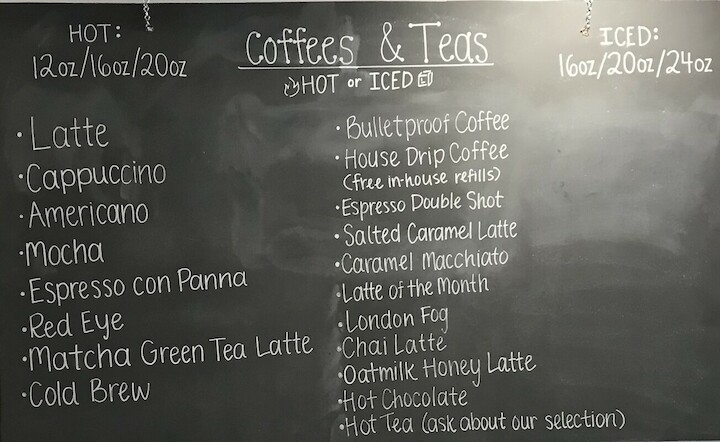 HOT:
12oz/16oz/20oz
Coffees & Teas
HOT or ICED
ICED:
16oz/20oz/24oz
·Latte
·Cappuccino
·Americano
·Mocha
·Espresso con Panna
·Red Eye
·Matcha Green Tea Latte
·Cold Brew
·Bulletproof Coffee
·House Drip Coffee
(free in-house refills)
·Espresso Double Shot
·Salted Caramel Latte
·Caramel Macchiato
·Latte of the Month
·London Fog
·Chai Latte
·Oatmilk Honey Latte
·Hot Chocolate
·Hot Tea (ask about our selection)